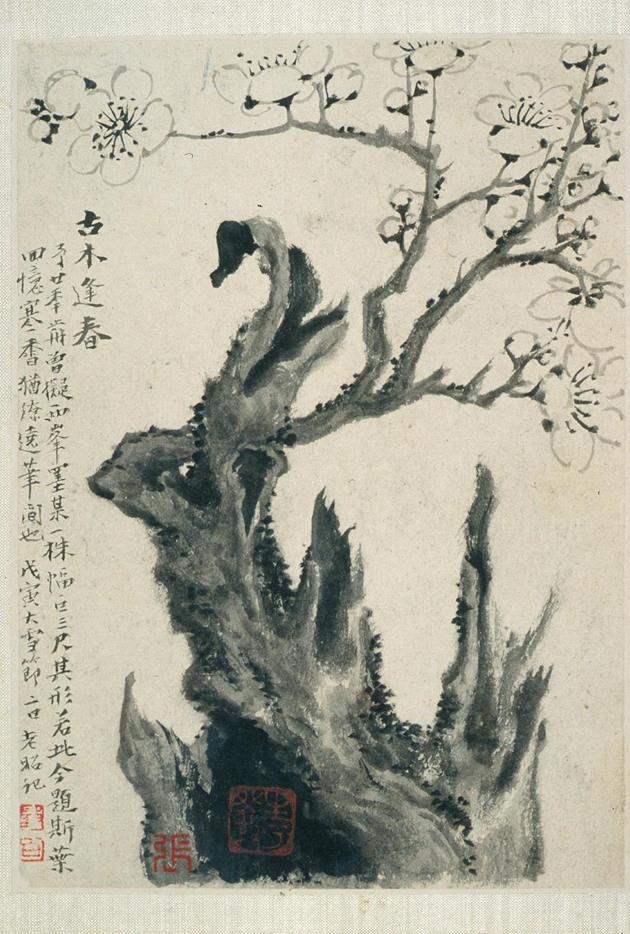 古木逢春
予廿年前曾擬兩峯墨某一株幅百三尺其形若此今題斯葉
回憶寒香猶繚遶華間也 戊寅大雪節二日老昭記
張